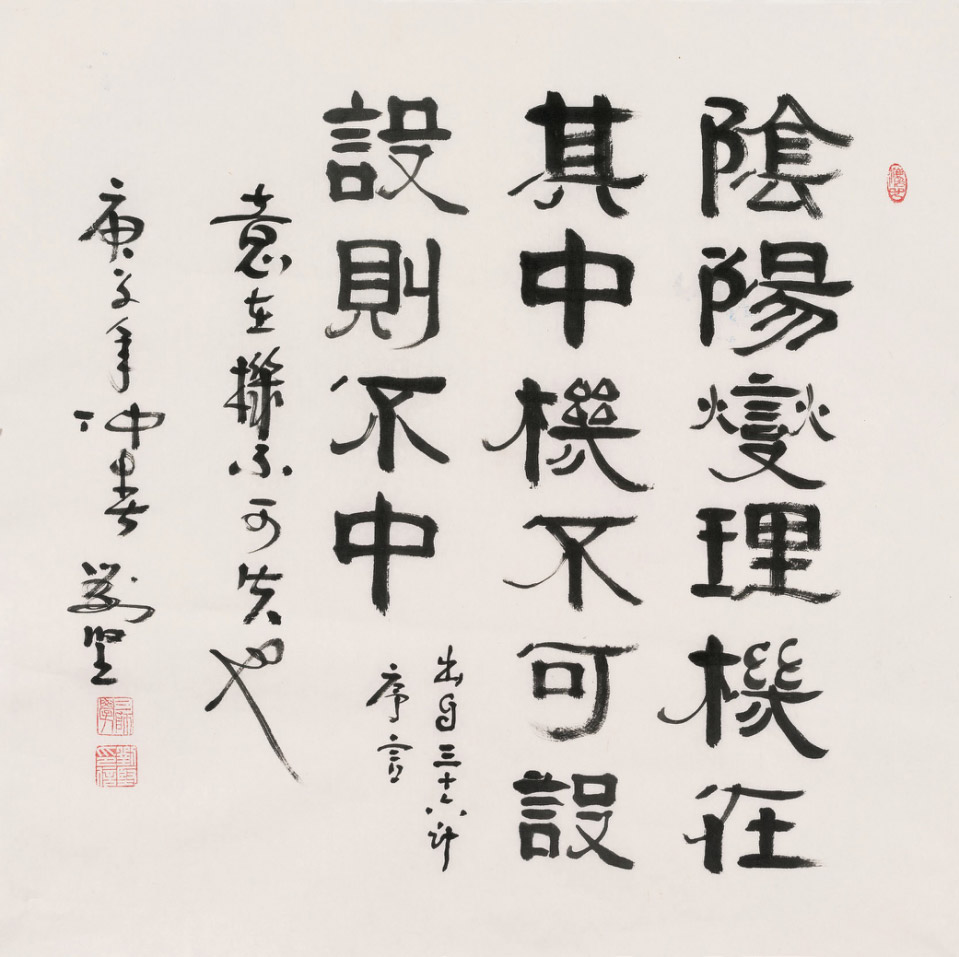 陰陽燮理機在
其中機不可設
設則不中
出自三十六计
序言
意在機不可失也
庚子年仲春 劉坚